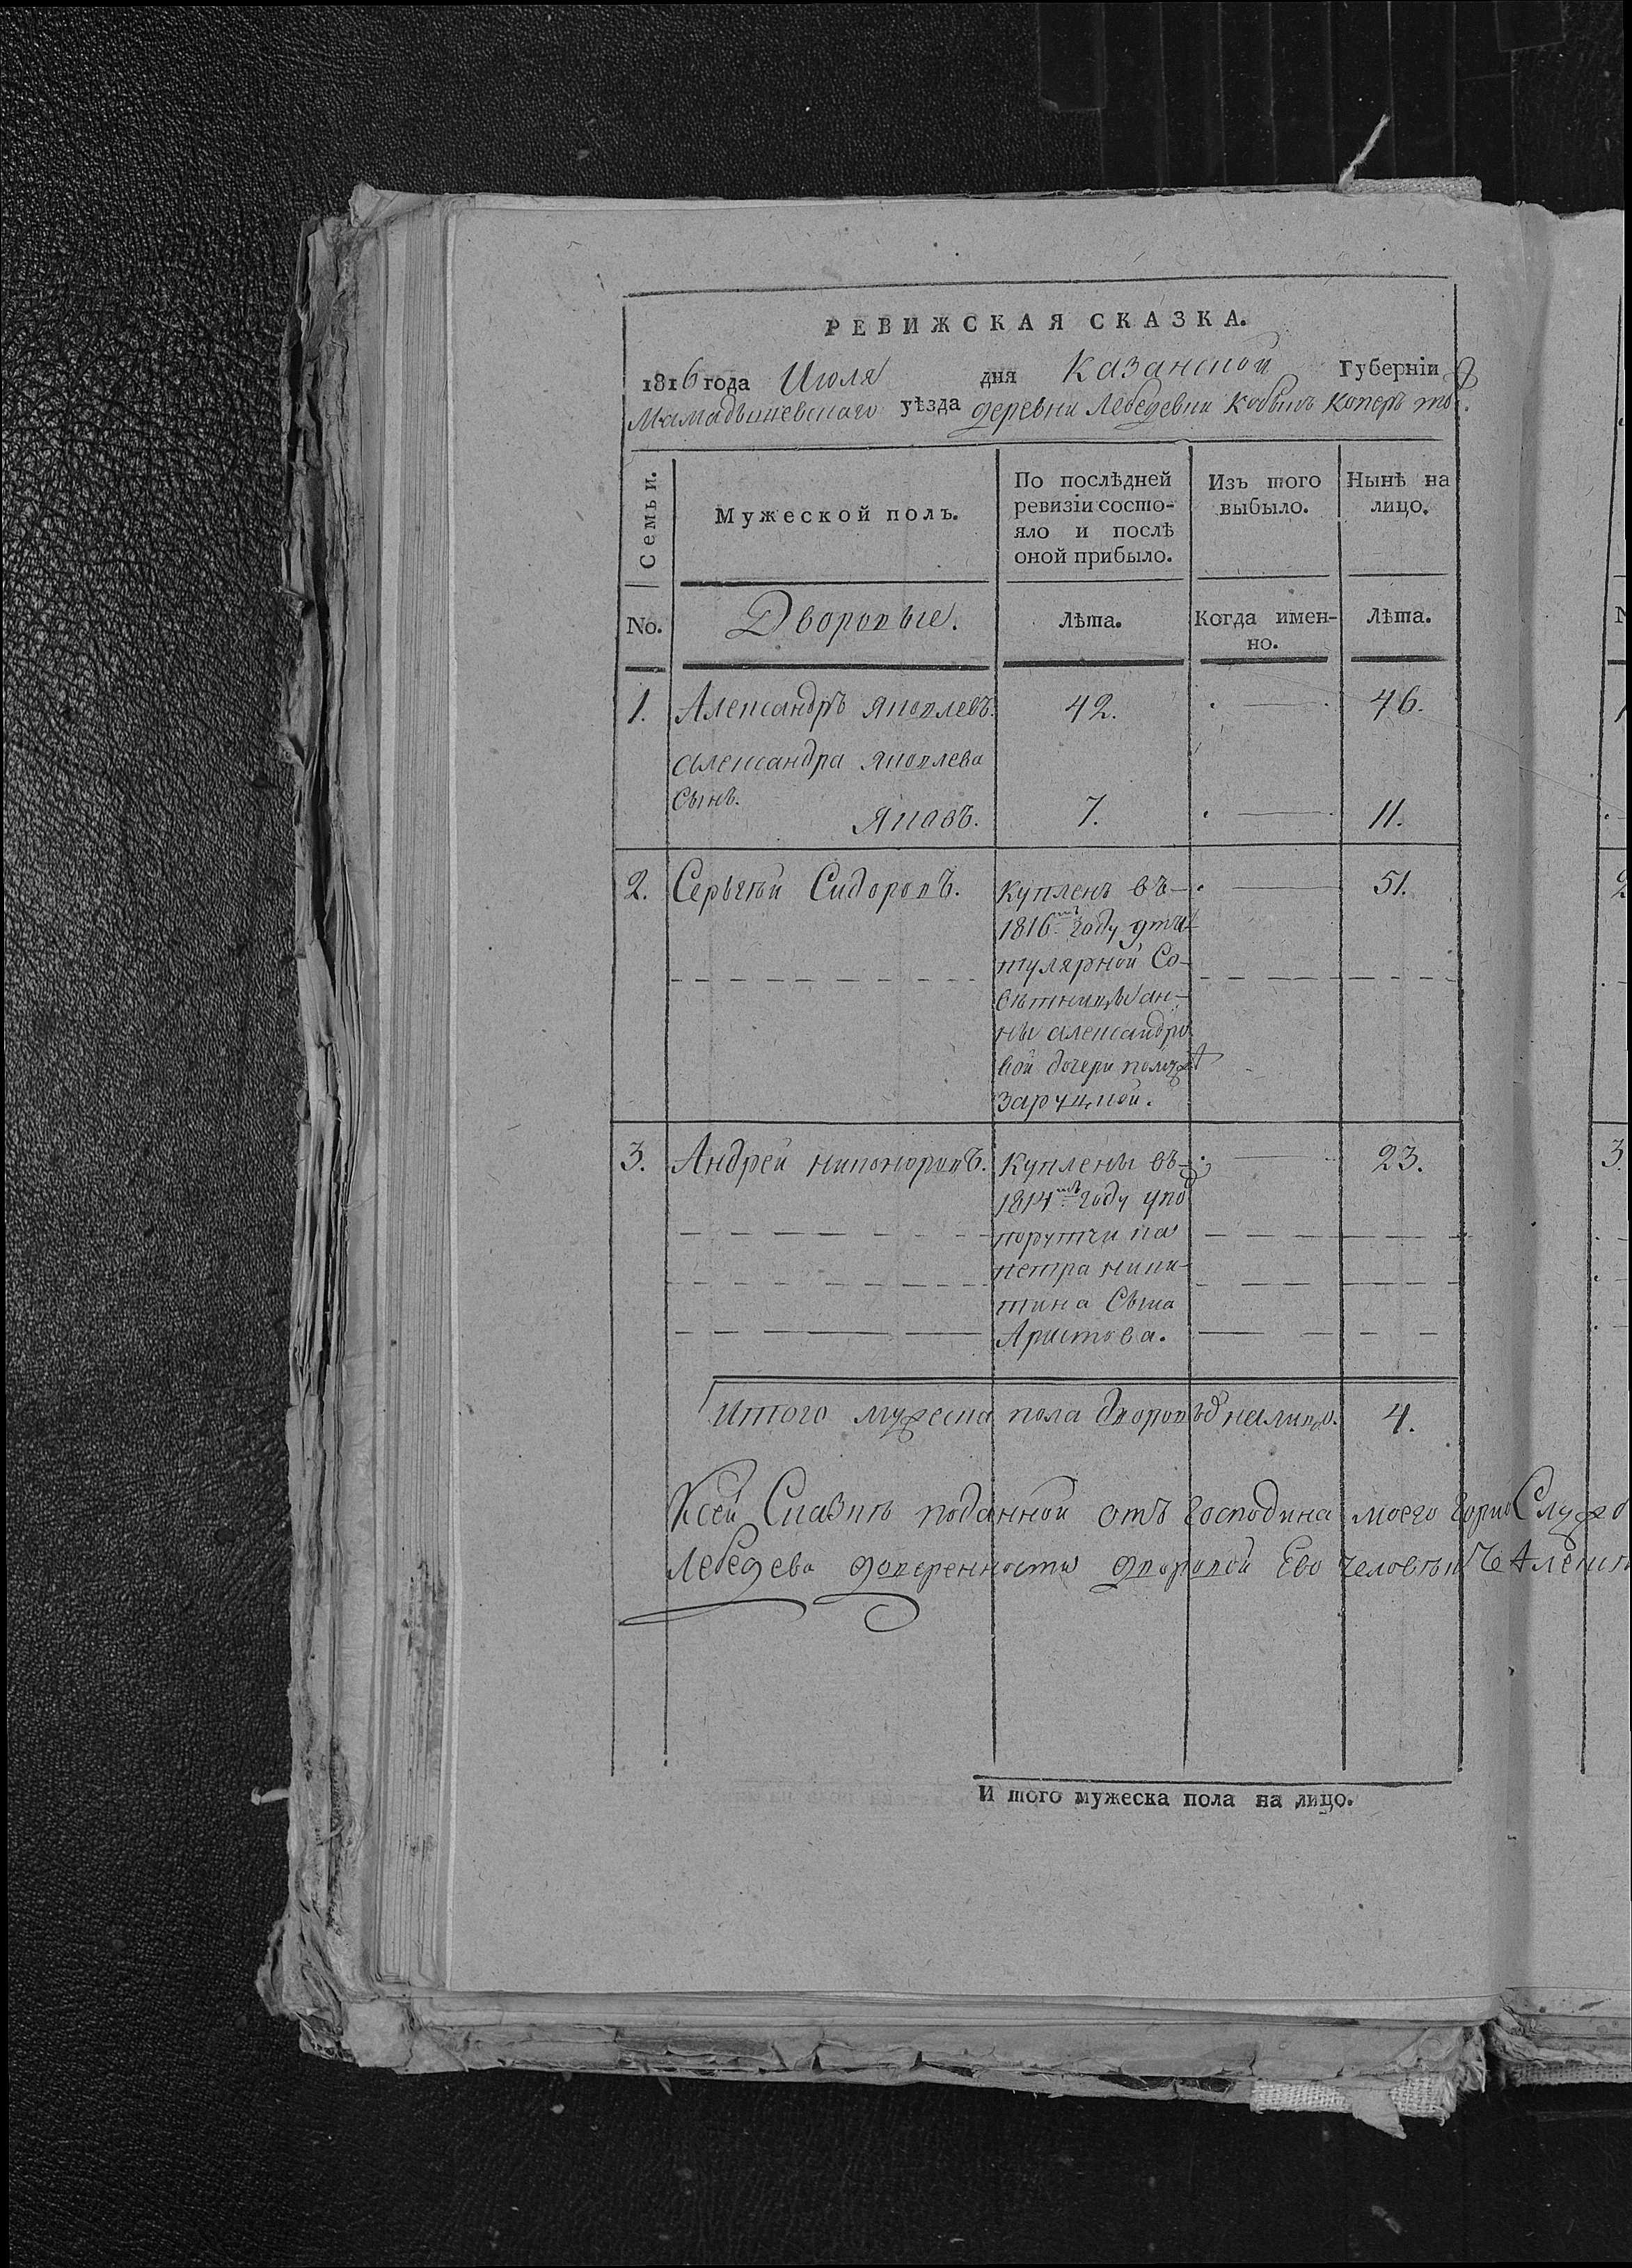 РЕВИЖСКАЯ СКАЗКА.
1816 года Июля дня Казанской Губерніи
Мамадышевскаго уѣзда деревни Лебедевки Кобыкъ Коперъ тожъ
Семьи.
Мужеской полъ.
По послѣдней
ревизіи состо-
яло и послѣ
оной прибыло.
Изъ того
выбыло.
Нынѣ на
лицо.
No.
Дворовые.
Лѣта.
Когда имен-
но.
Лѣта.
1. Александръ Яковлевъ. 42. 46.
Александра Яковлева
Сынъ.
Яковъ. 7. 11.
2. Серьгѣй Сидоровъ. Купленъ въ- 51.
1816мъ году у ти-
тулярной Со-
вѣтницы Ан-
ны Александро
вой дочери
Заруцкой.
3. Андрей Никоноровъ. Куплены въ- 23.
1814мъ году у по
порутчика
Петра Ники-
тина Сына
Аристова.
Итого мужеска пола дворовыхъ налицо. 4.
К сей Сказкѣ поданной отъ Господина моего Служ
Лебедева доверенности дворовой Ево человѣкъ Алекс
И того мужеска пола на лицо.